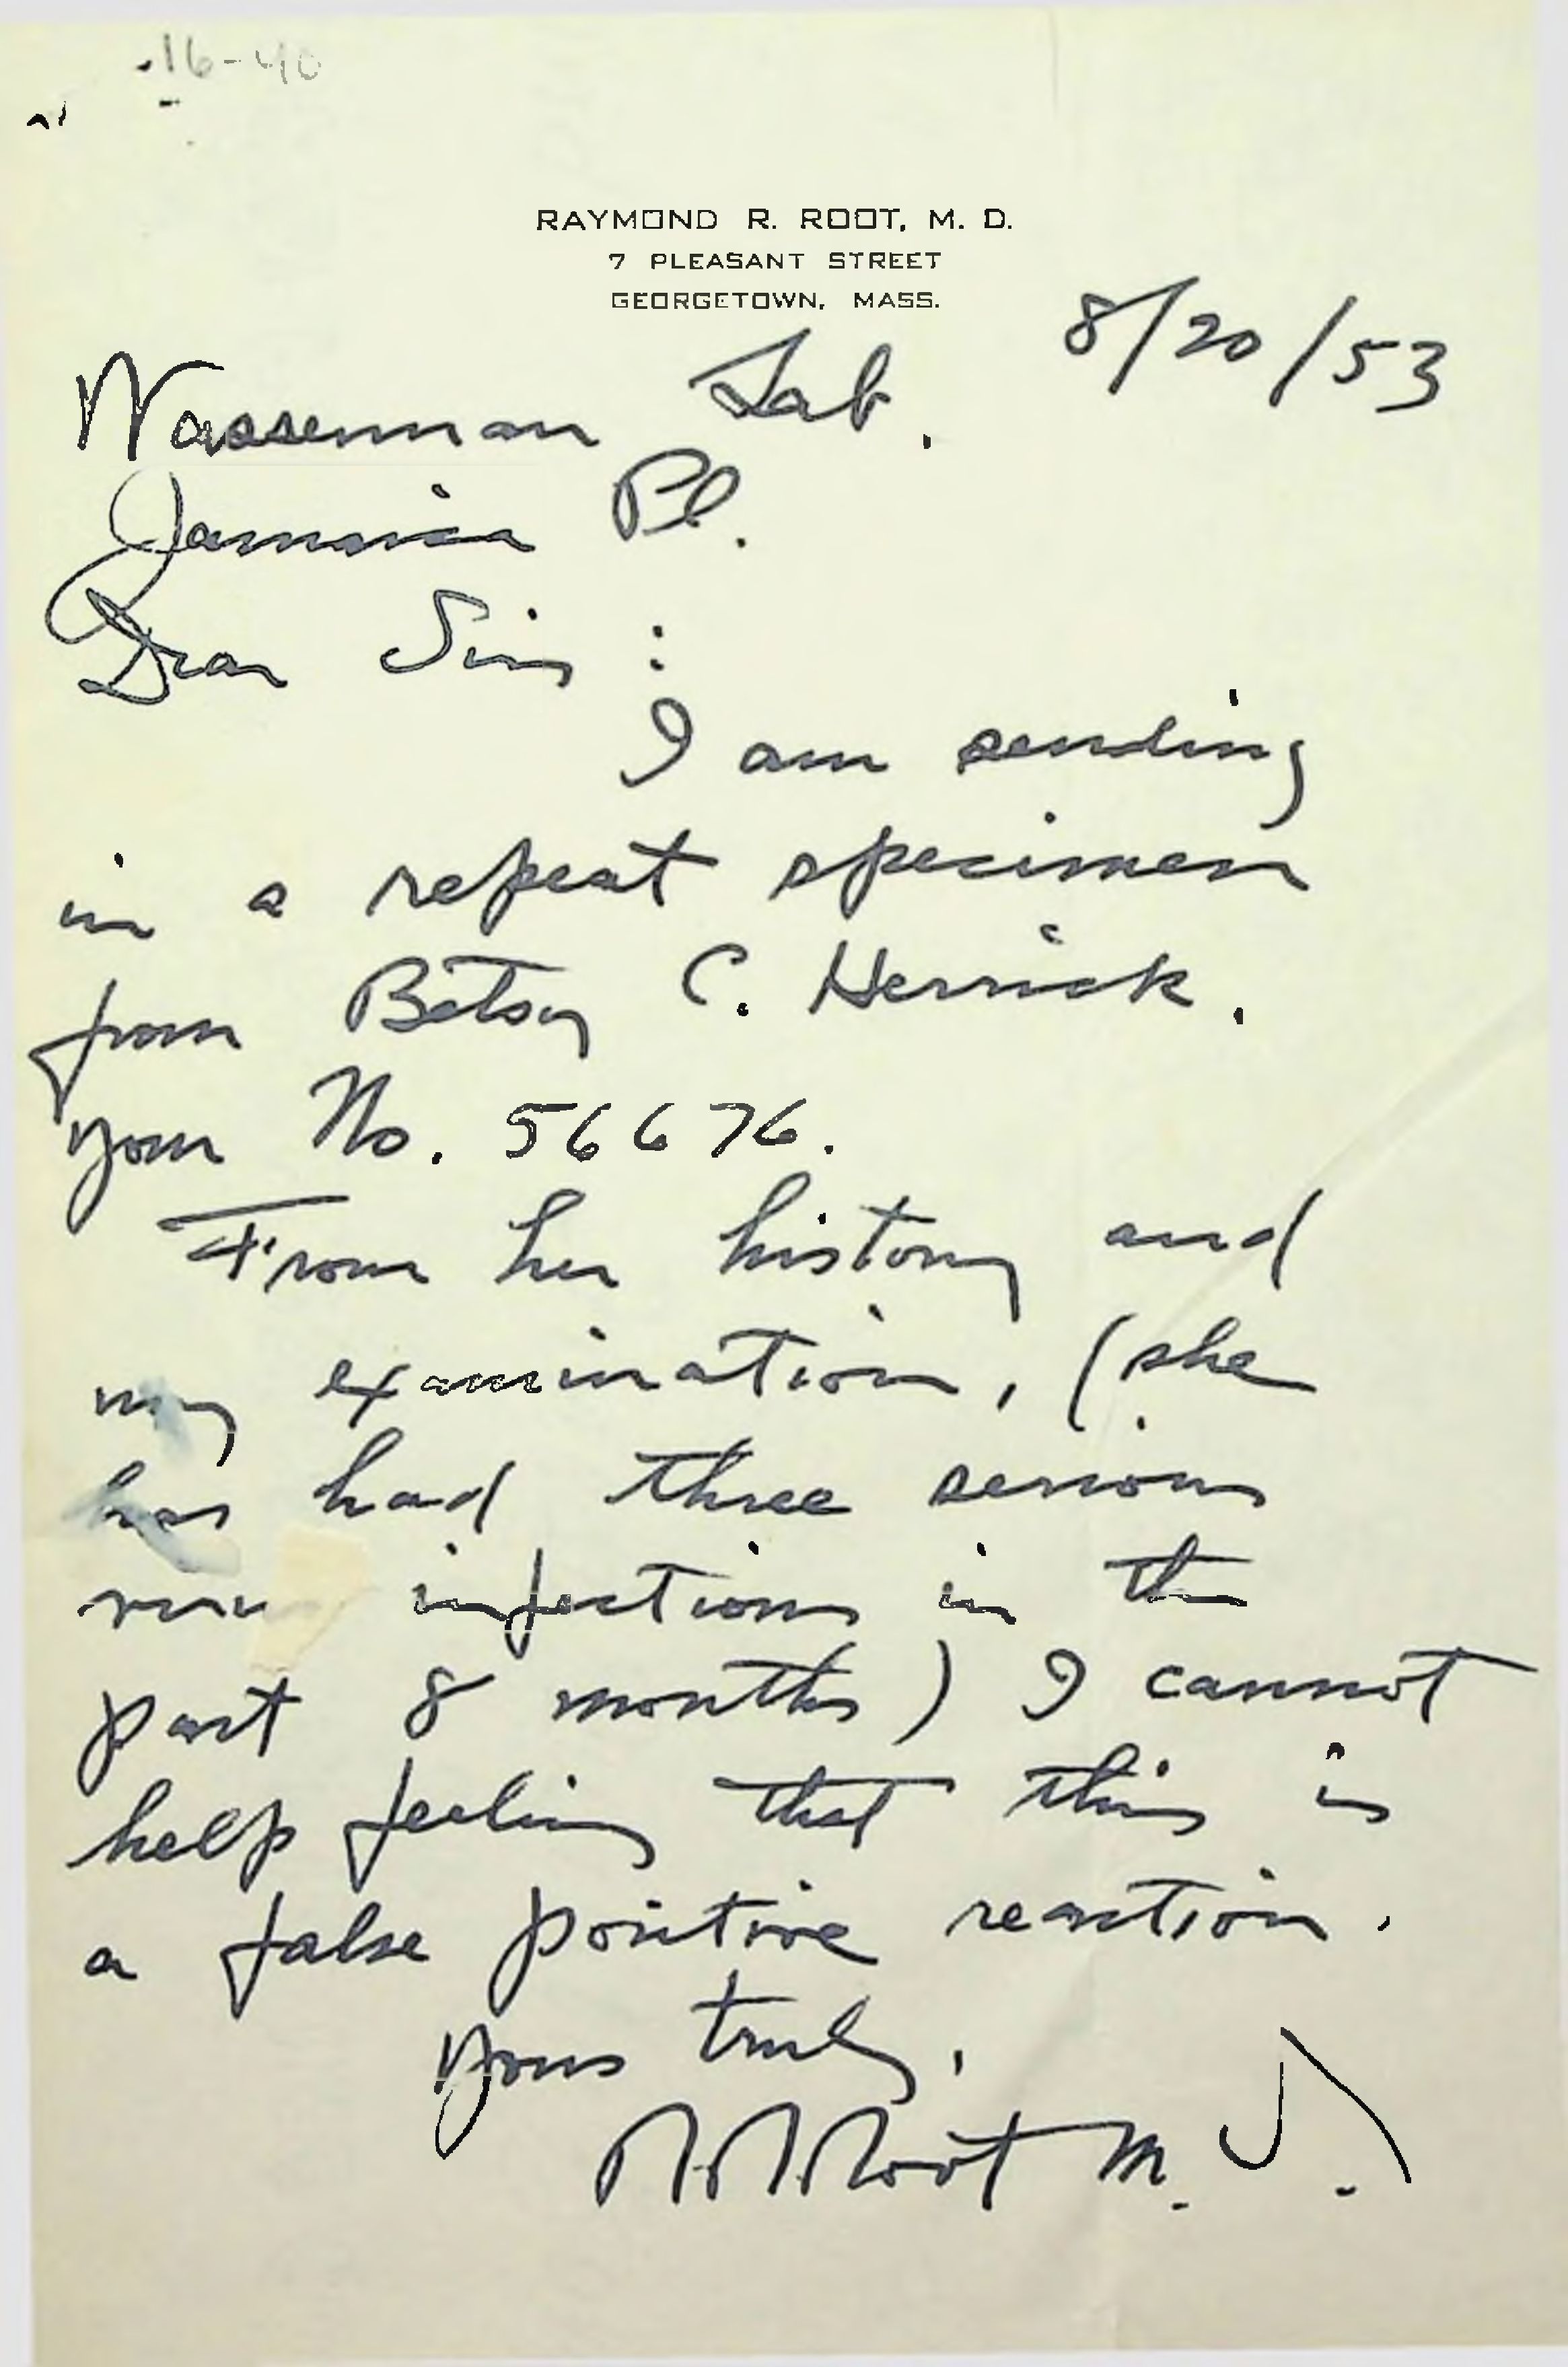 16-40
RAYMOND R. ROOT, M. D.
7 PLEASANT STREET
GEORGETOWN, MASS.
8/20/53
Wasserman Lab.
Jamaica Pl.
Dear Sirs :
I am sending
in a repeat specimen
from Betsy C. Herrick.
your No. 56676.
From her history and
my examination, (she
has had three serious
infections in the
past 8 months) I cannot
help feeling that this is
a false positive reaction.
Yours truly,
RR Root M. D.